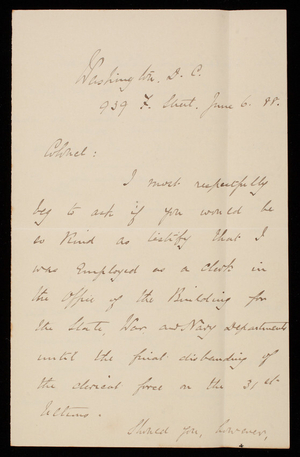 Washington, D. C.
939 F. Street, June 6. 88.
Colonel:
I most respectfully
beg to ask if you would be
so Kind as testify that I
was Employed as a clerk in
the Office of the Building for
the State, War and Navy Departments
until the final disbanding of
the clerical force on the 31st
Ultimo.
Should you, however,